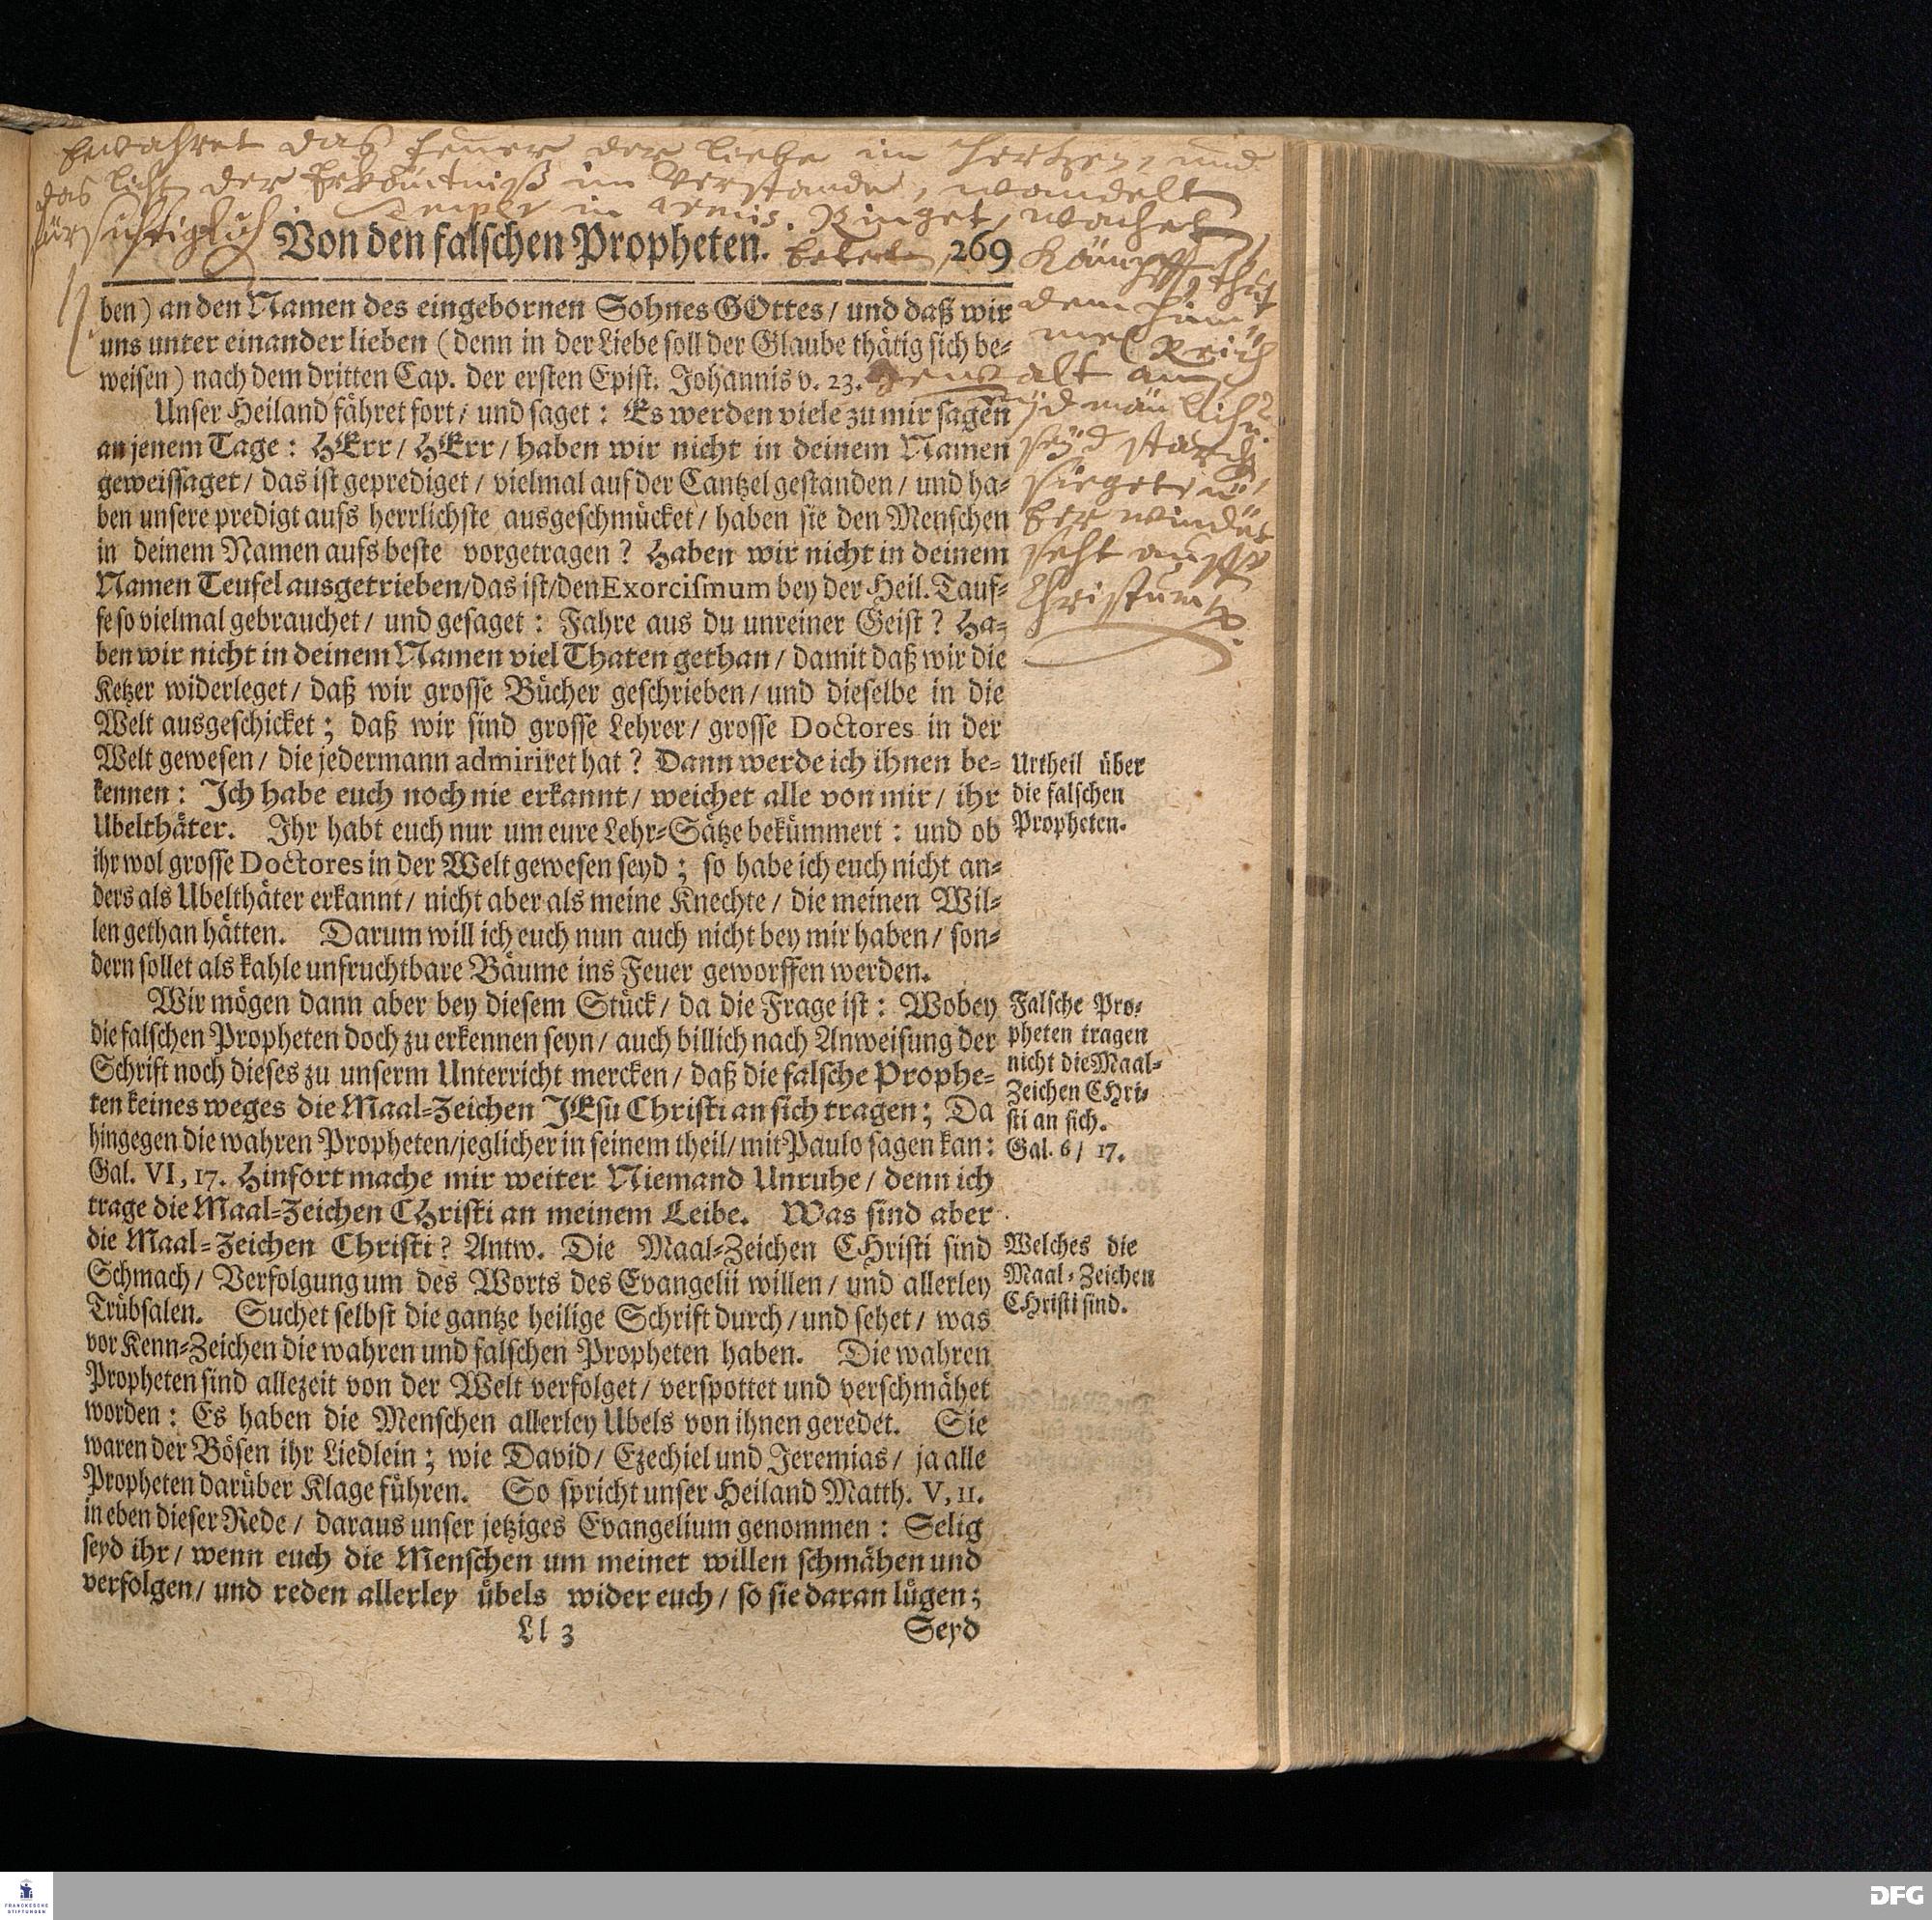 bewahret das feuer der liebe im hertzen, und
das licht der Erkäntniß im Verstande, wandelt
fürsichtiglich. Semper in armis. Ringet, wachet
Von den falschen Propheten. betet 269
kämpfft, thut
dem him
mel Reich
gewalt an
seyd männlich
seyd starck
sieget, ü
berwindet
seht auff
Christum
ben) an den Namen des eingebornen Sohnes GOttes/ und daß wir
uns unter einander lieben (denn in der Liebe soll der Glaube thätig sich be-
weisen) nach dem dritten Cap. der ersten Epist. Johannis v. 23.
Unser Heiland fähret fort/ und saget: Es werden viele zu mir sagen
an jenem Tage: HErr/ HErr/ haben wir nicht in deinem Namen
geweissaget/ das ist geprediget/ vielmal auf der Cantzel gestanden/ und ha-
ben unsere predigt aufs herrlichste ausgeschmücket/ haben sie den Menschen
in deinem Namen aufs beste vorgetragen? Haben wir nicht in deinem
Namen Teufel ausgetrieben/das ist/den Exorcismum bey der Heil. Tauf-
fe so vielmal gebrauchet/ und gesaget: Fahre aus du unreiner Geist? Ha-
ben wir nicht in deinem Namen viel Thaten gethan/ damit daß wir die
Ketzer widerleget/ daß wir grosse Bücher geschrieben/ und dieselbe in die
Welt ausgeschicket; daß wir sind grosse Lehrer/ grosse Doctores in der
Welt gewesen/ die jedermann admiriret hat? Dann werde ich ihnen be-
kennen: Ich habe euch noch nie erkannt/ weichet alle von mir/ ihr
Ubelthäter. Ihr habt euch nur um eure Lehr-Sätze bekümmert: und ob
ihr wol grosse Doctores in der Welt gewesen seyd; so habe ich euch nicht an-
ders als Ubelthäter erkannt/ nicht aber als meine Knechte/ die meinen Wil-
len gethan hätten. Darum will ich euch nun auch nicht bey mir haben/ son-
dern sollet als kahle unfruchtbare Bäume ins Feuer geworffen werden.
Urtheil über
die falschen
Propheten.
Wir mögen dann aber bey diesem Stück/ da die Frage ist: Wobey
die falschen Propheten doch zu erkennen seyn/ auch billich nach Anweisung der
Schrift noch dieses zu unserm Unterricht mercken/ daß die falsche Prophe-
ten keines weges die Maal-Zeichen JEsu Christi an sich tragen; Da
hingegen die wahren Propheten/jeglicher in seinem theil/ mit Paulo sagen kan:
Gal. VI, 17. Hinfort mache mir weiter Niemand Unruhe/ denn ich
trage die Maal-Zeichen CHristi an meinem Leibe. Was sind aber
die Maal-Zeichen Christi? Antw. Die Maal-Zeichen CHristi sind
Schmach/ Verfolgung um des Worts des Evangelii willen/ und allerley
Trübsalen. Suchet selbst die gantze heilige Schrift durch/ und sehet/ was
vor Kenn-Zeichen die wahren und falschen Propheten haben. Die wahren
Propheten sind allezeit von der Welt verfolget/ verspottet und verschmähet
worden: Es haben die Menschen allerley Ubels von ihnen geredet. Sie
waren der Bösen ihr Liedlein; wie David/ Ezechiel und Jeremias/ ja alle
Propheten darüber Klage führen. So spricht unser Heiland Matth. V, 11.
in eben dieser Rede/ daraus unser jetziges Evangelium genommen: Selig
seyd ihr/ wenn euch die Menschen um meinet willen schmähen und
verfolgen/ und reden allerley übels wider euch/ so sie daran lügen;
Falsche Pro-
pheten tragen
nicht die Maal-
Zeichen CHri-
sti an sich.
Gal. 6/ 17.
Welches die
Maal-Zeichen
CHristi sind.
Ll 3
Seyd
FRANCKESCHE
STIFTUNGEN
DFG